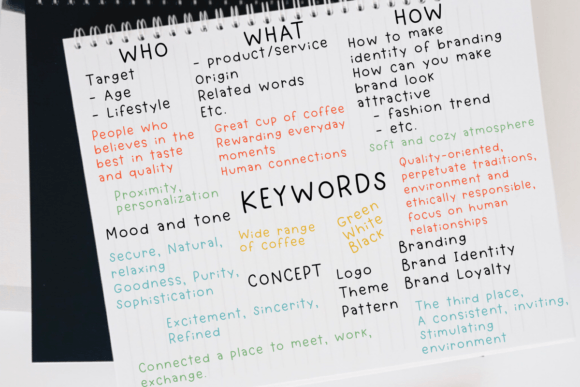 WHO
Target
- Age
- Lifestyle
People who
believes in the
best in taste
and quality
Proximity,
personalization
Mood and tone
Secure, Natural,
relaxing
Goodness, Purity,
Sophistication
WHAT
- product/service
Origin
Related words
Etc.
Great cup of coffee
Rewarding everyday
moments
Human connections
KEYWORDS
Wide range
of coffee
Green
White
Black
CONCEPT
Logo
Theme
Pattern
Excitement, Sincerity,
Refined
Connected a place to meet, work,
exchange.
HOW
How to make
identity of branding
How can you make
brand look
attractive
- fashion trend
- etc.
Soft and cozy atmosphere
Quality-oriented,
perpetuate traditions,
environment and
ethically responsible,
focus on human
relationships
Branding
Brand Identity
Brand Loyalty
The third place,
A consistent, inviting,
Stimulating
environment